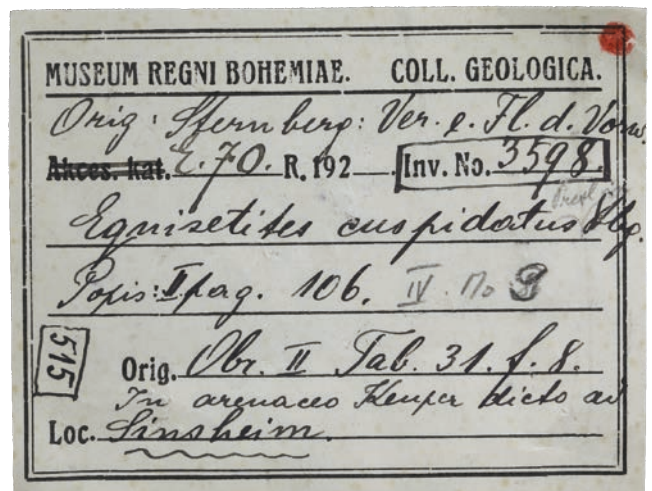 MUSEUM REGNI BOHEMIAE. COLL. GEOLOGICA.
Orig: Sternberg: Ver. e. Fl. d. Vorw.
Akces. kat. E. 70. R. 192 Inv. No. 3598.
Presl
Equisetites cuspidatus Stbg.
Popis: II pag. 106. IV. No 9
515
Orig. Obr. II Tab. 31. f. 8.
In arenaceo Keuper dicto ad
Loc. Sinsheim.